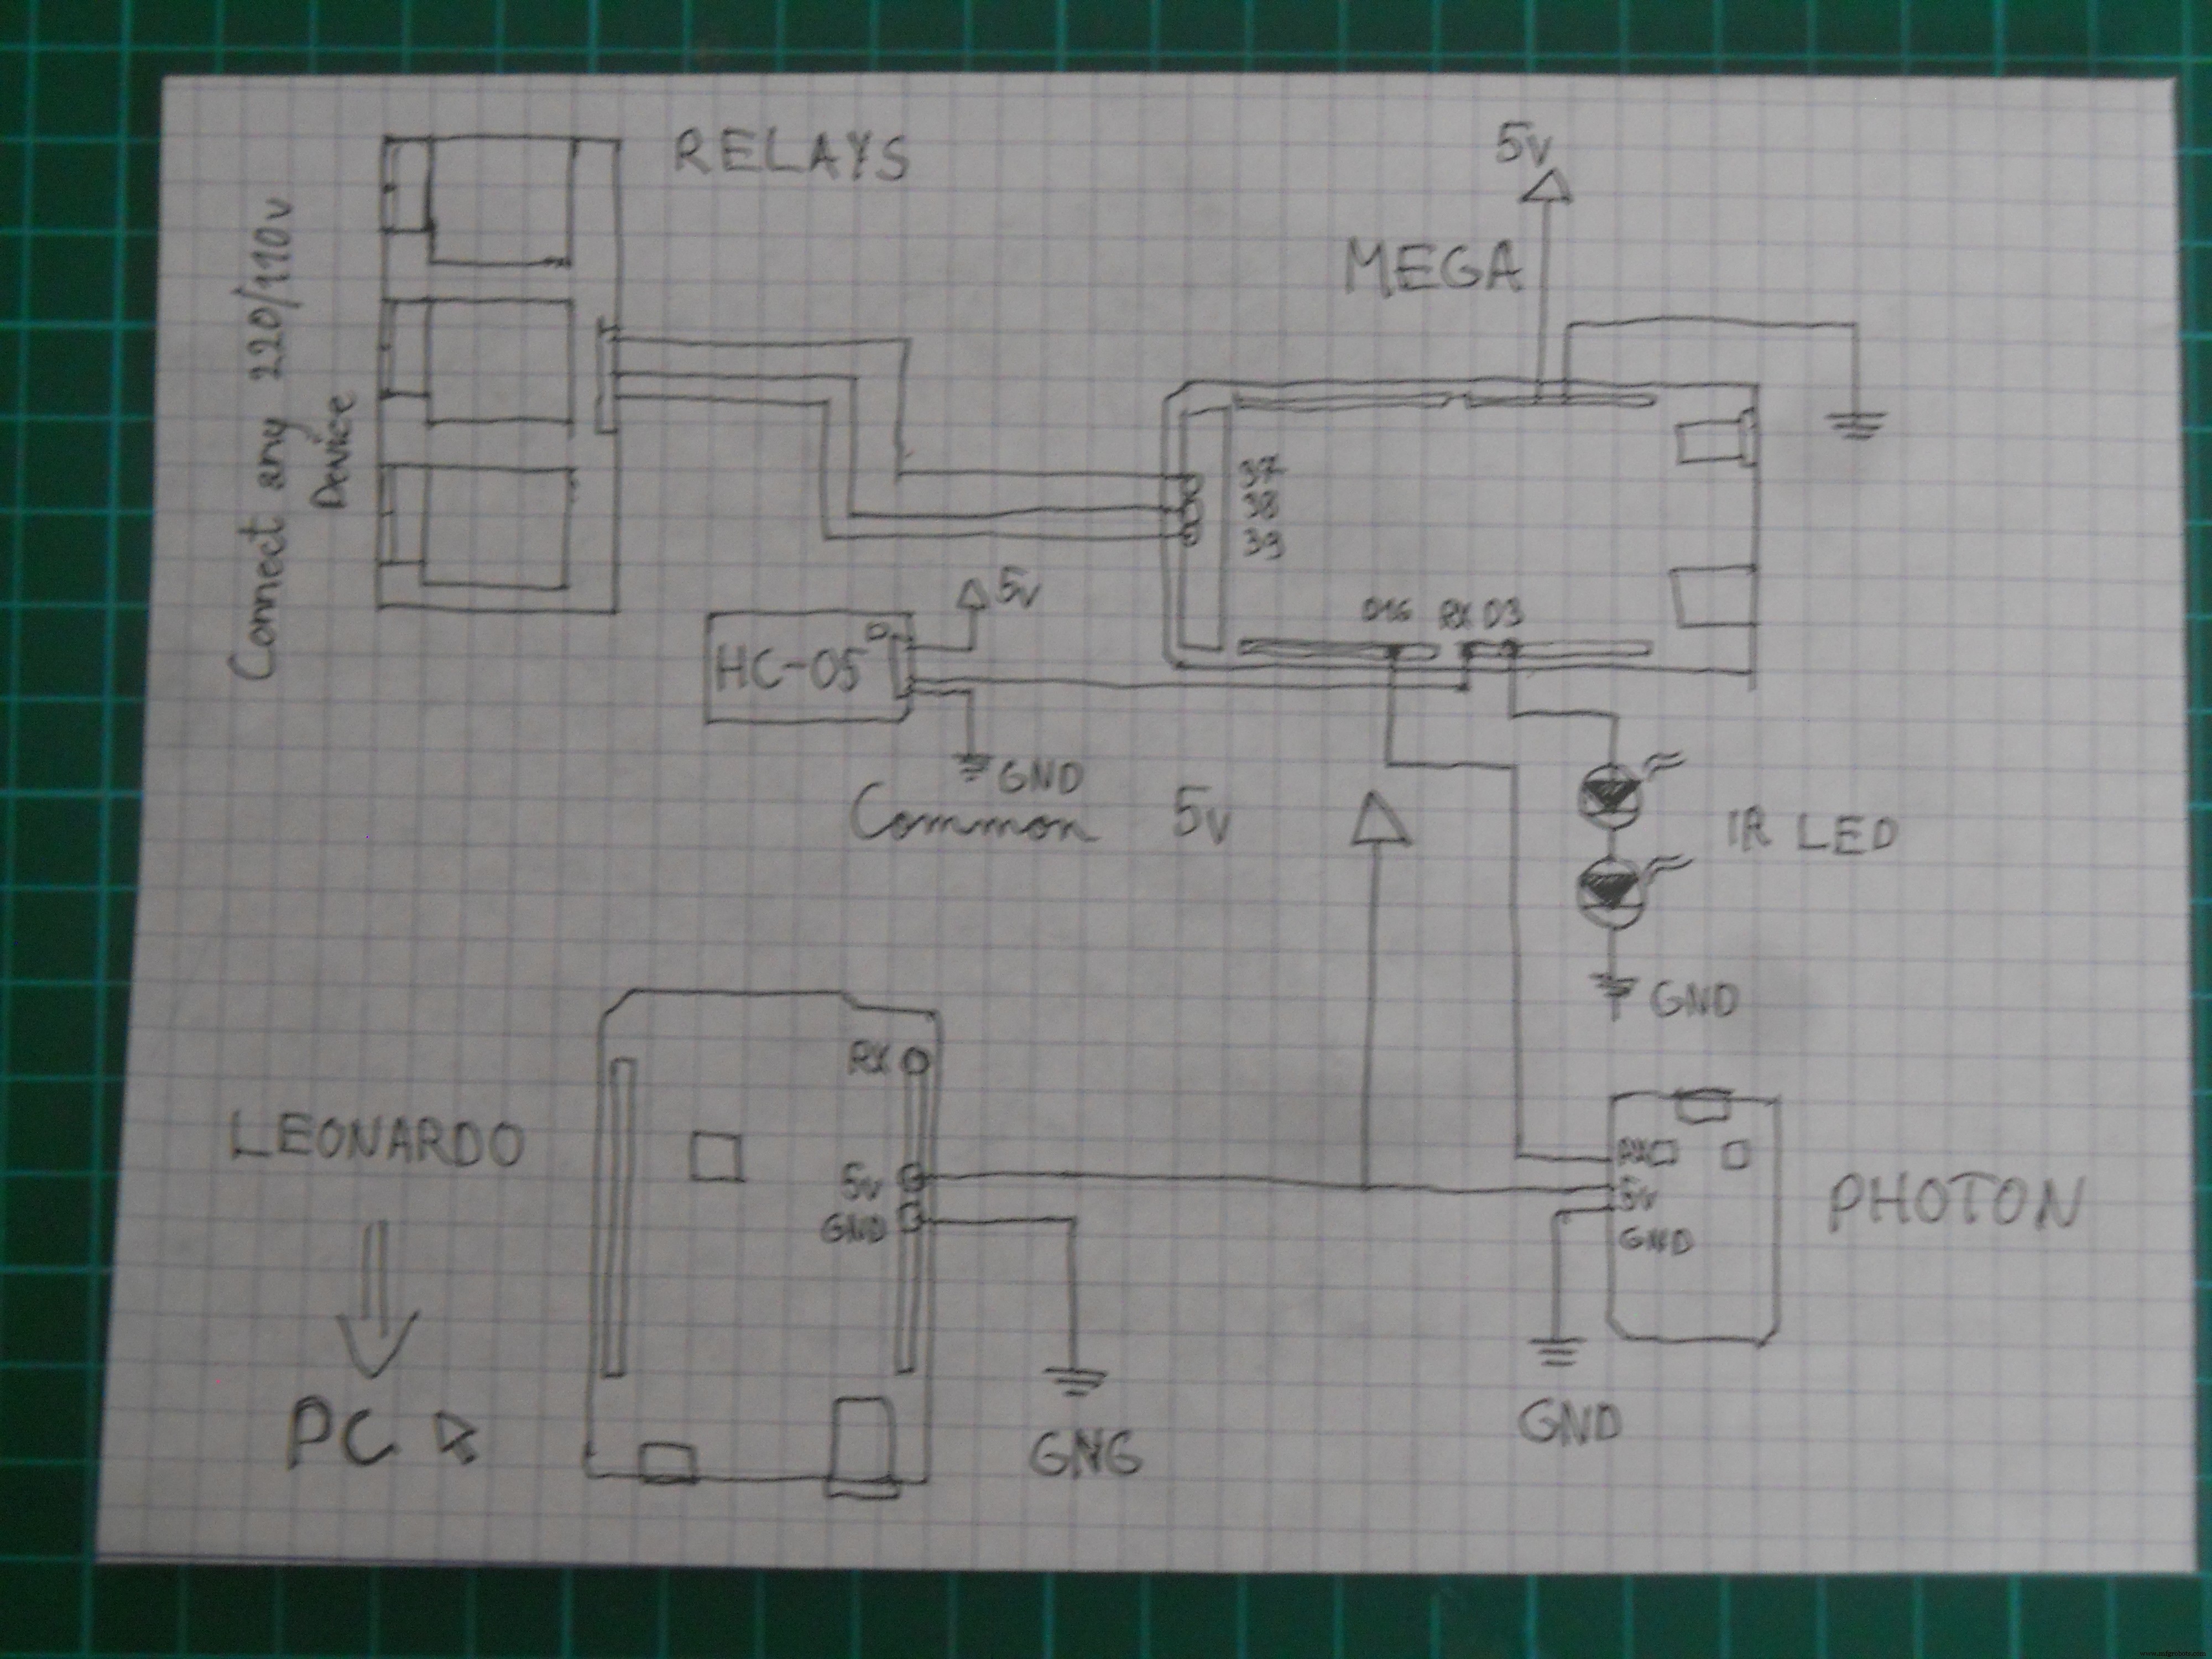 RELAYS
5v
MEGA
Connect any 220/110v
Device
37
38
39
5v
D16 RX D3
HC-05
GND
Common 5v
IR LED
GND
RX
LEONARDO
5v
GND
RX
5v
GND
PHOTON
PC
GNG
GND